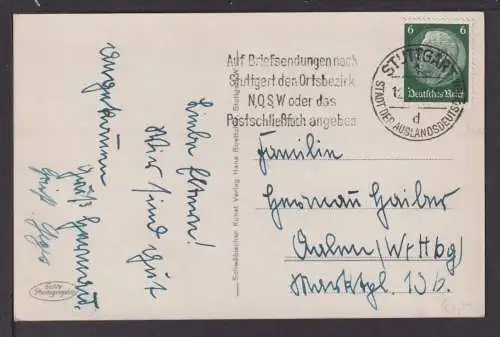 Liebe Eltern!
Wir sind gut
angekommen
Gruß
Auf Briefsendungen nach
Stuttgart den Ortsbezirk
N,O,S,W oder das
Postschließfach angeben
STUTTGART
STADT DER AUSLANDSDEUTSCHEN
d
6 6
Deutsches Reich
Familie
Hermann Haiber
Aalen/Wttbg/
Marktpl. 13b.
Schwäbischer Kunst Verlag Hans Boettcher, Stuttgart
Echte
Photographie